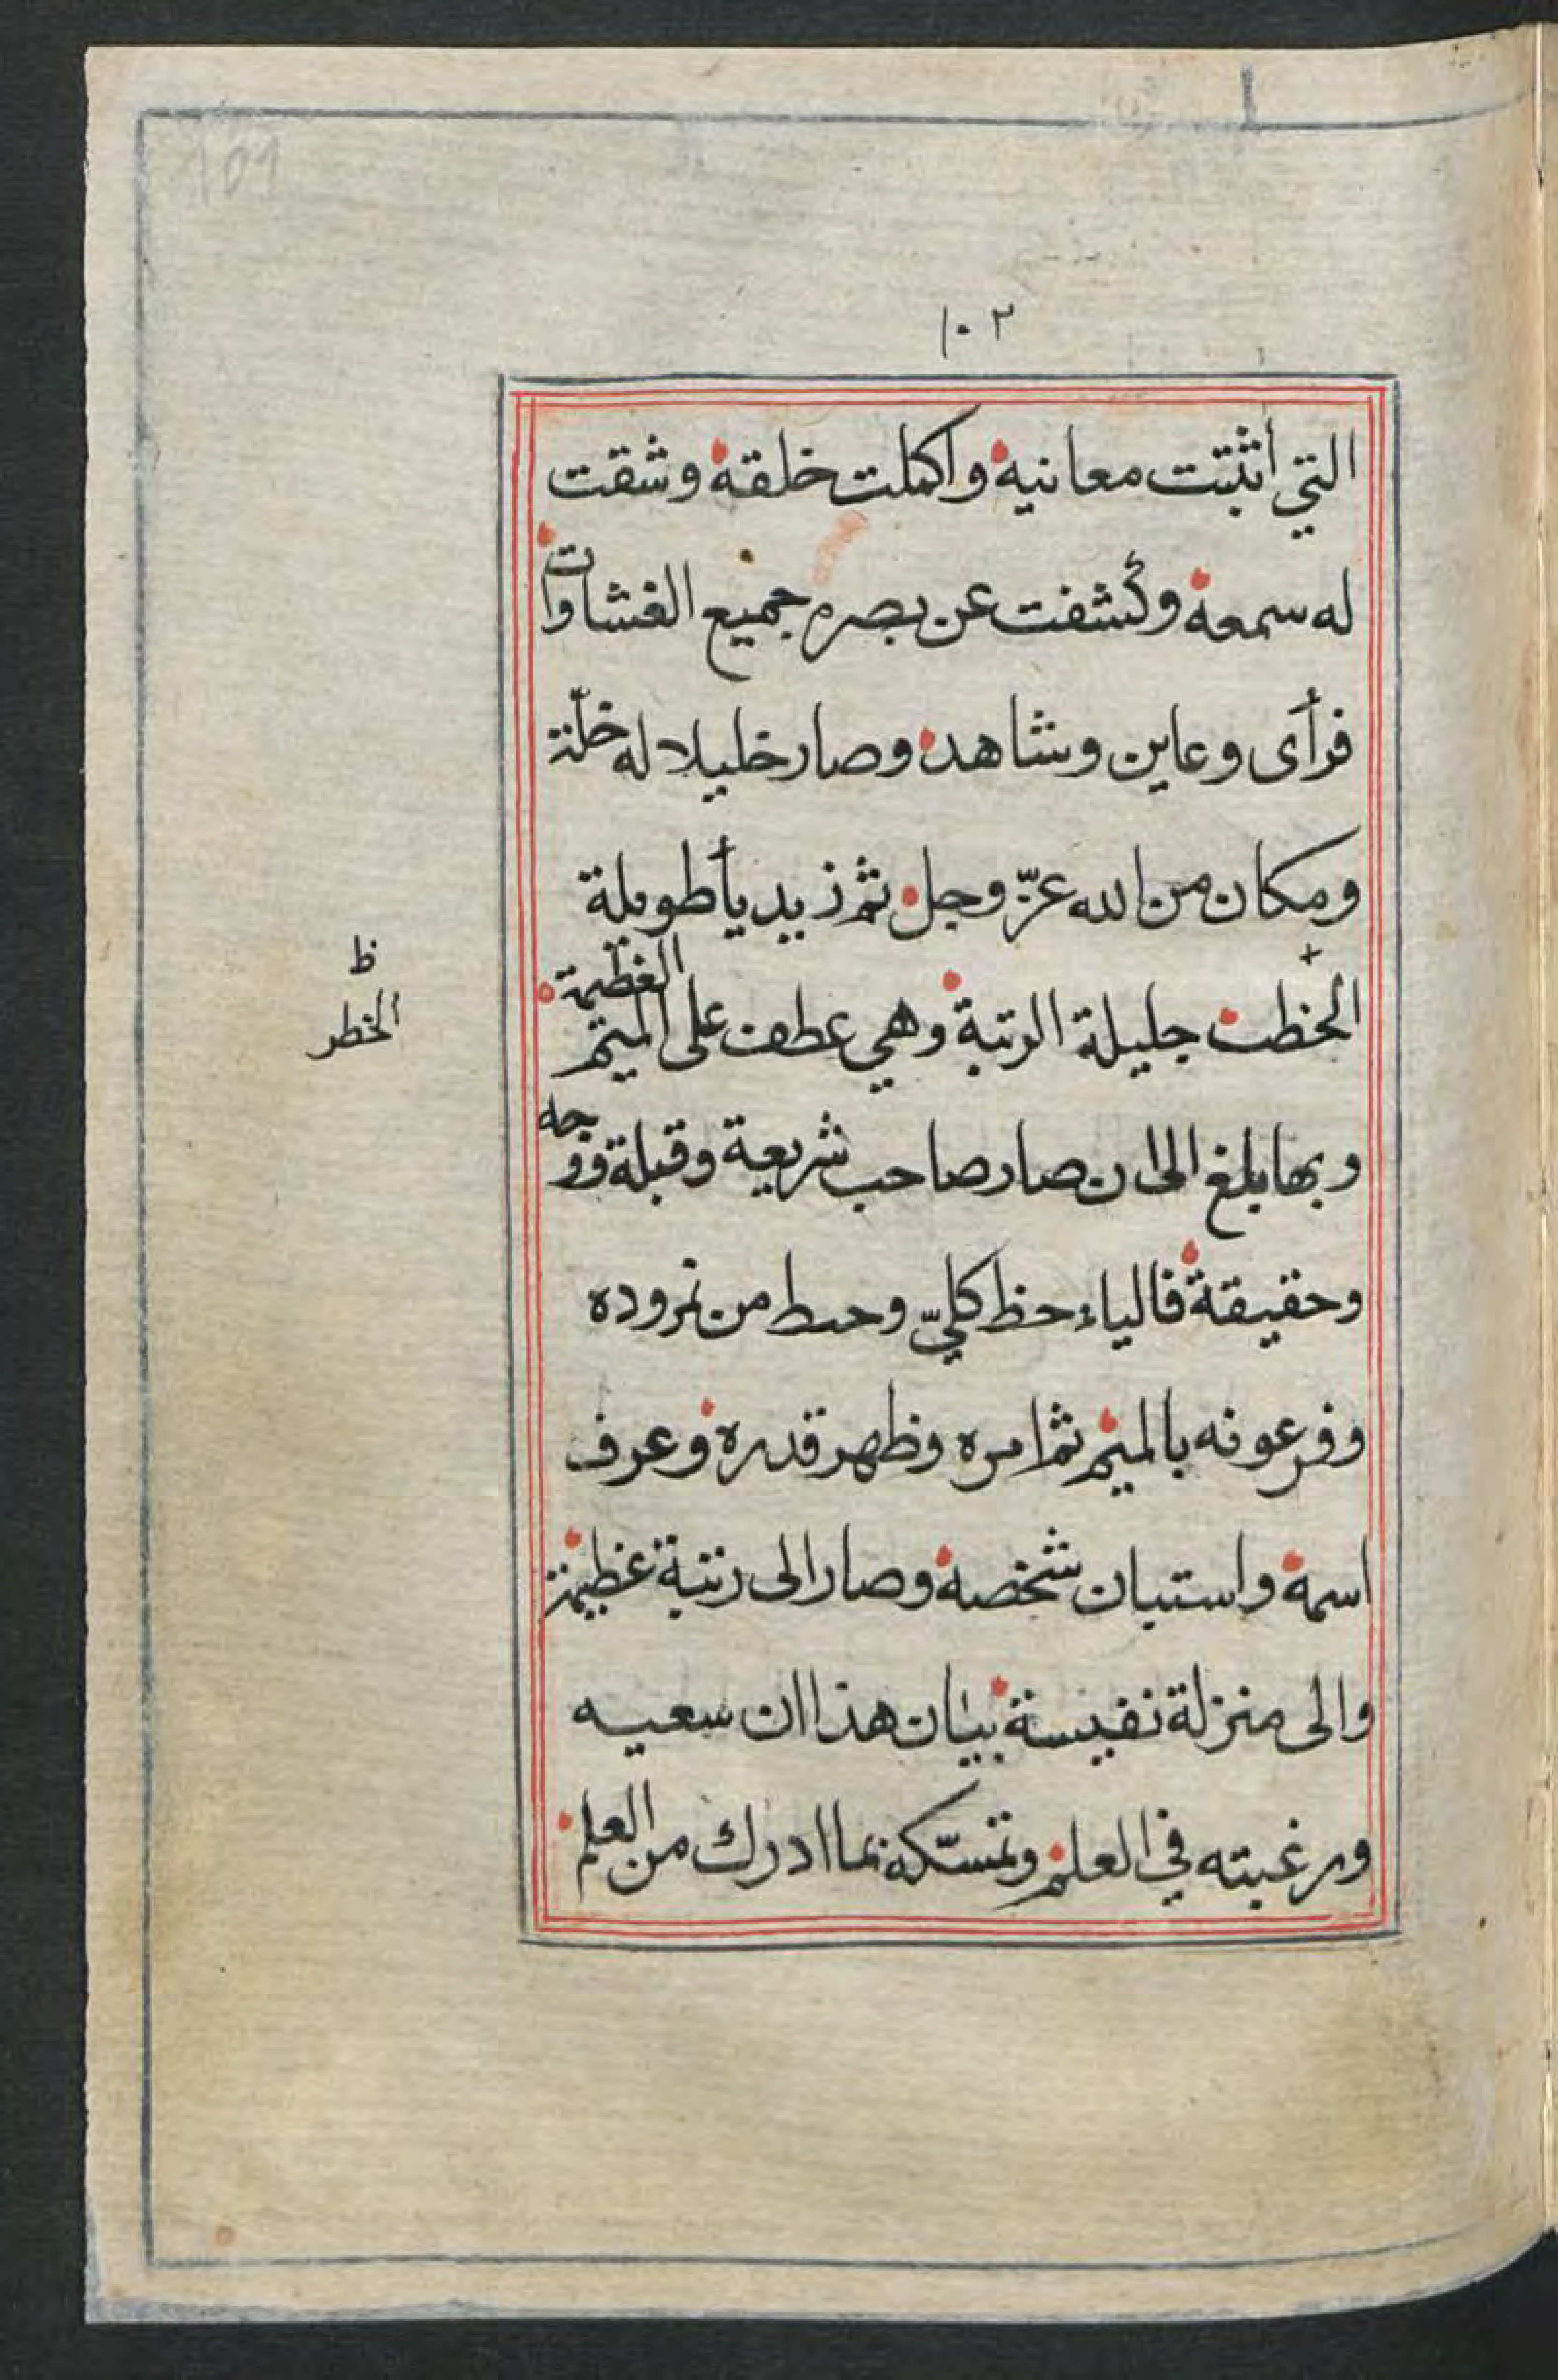 101
١٠٢
التي أثبتت معانيه واكملت خلقه وشقت
له سمعه وكشفت عن بصره جميع الغشاوات
فرأى وعاين وشاهد وصار خليلا له خلّة
ومكان من الله عزّ وجل ثم زيد يأ طويلة
الخطت جليلة الرتبة وهي عطف على الميم العظيمة
ظ
الخطر
وبها بلغ الى ان صار صاحب شريعة وقبلة ووجه
وحقيقة فالياء حظ كليّ وحط من نمروده
وفرعونه بالميم ثم امره وظهر قدره وعرف
اسمه واستبان شخصه وصار الى رتبة عظيمة
والى منزلة نفيسة بيان هذا ان سعيه
ورغبته في العلم وتمسّكه بما ادرك من العلم